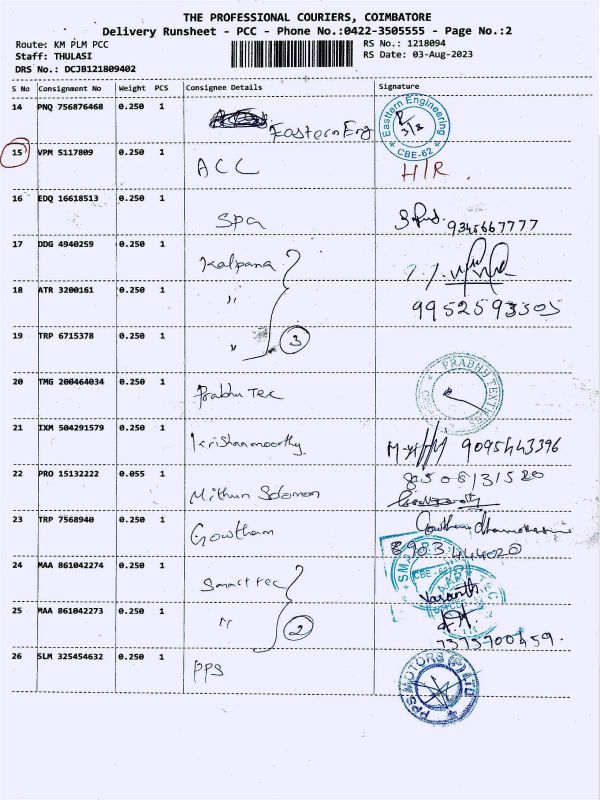 THE PROFESSIONAL COURIERS, COIMBATORE
Delivery Runsheet - PCC - Phone No.:0422-3505555 - Page No.:2
Route: KM PLM PCC RS No.: 1218094
Staff: THULASI RS Date: 03-Aug-2023
DRS No.: DCJB121809402
S No Consignment No Weight PCS Consignee Details Signature
14 PNQ 756876468 0.250 1 Eastern Eng Eastern Engineering 3/8 CBE-62
15 VPM 5117809 0.250 1 ACC H/R.
16 EDQ 16618513 0.250 1 Spa 9345667777
17 DDG 4940259 0.250 1 Kalpana
18 ATR 3200161 0.250 1 " 9952593505
19 TRP 6715378 0.250 1 " 3
20 TMG 200464034 0.250 1 Prabhu Tex PRABHU TEXTILES
21 IXM 504291579 0.250 1 Krishnamoorthy 9095443396
22 PRO 15132222 0.055 1 Mithun Solomon 8508131520
23 TRP 7568940 0.250 1 Gowtham 8903444020
24 MAA 861042274 0.250 1 Smart Tec CBE-62 Vasanth
25 MAA 861042273 0.250 1 " 2 7373700459.
26 SLM 325454632 0.250 1 PPS PPS MOTORS (P) LTD